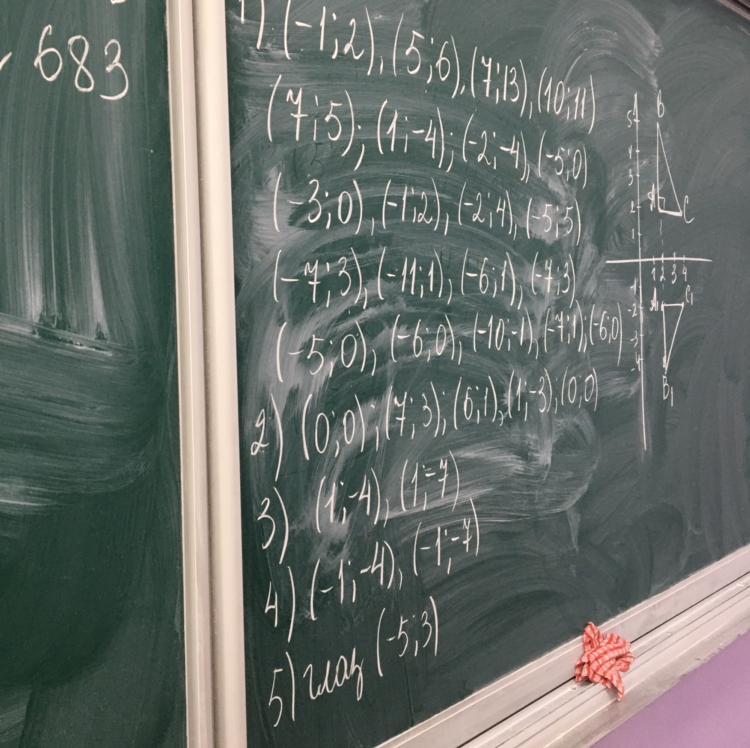 683
1) (-1;2), (5;6), (7;13), (10;11)
(7;5); (1;-4); (-2;-4), (-5;0)
(-3;0), (-1;2), (-2;4), (-5;5)
(-7;3), (-11;1), (-6;1), (-7;3)
(-5;0), (-6;0), (-10;-1), (-7;1); (-6;0)
2) (0;0); (7;3); (6;1), (1;-3); (0;0)
3) (1;-4), (1;-7)
4) (-1;-4), (-1;-7)
5) глаз (-5;3)
B
A
C
1 2 3 4
C1
B1